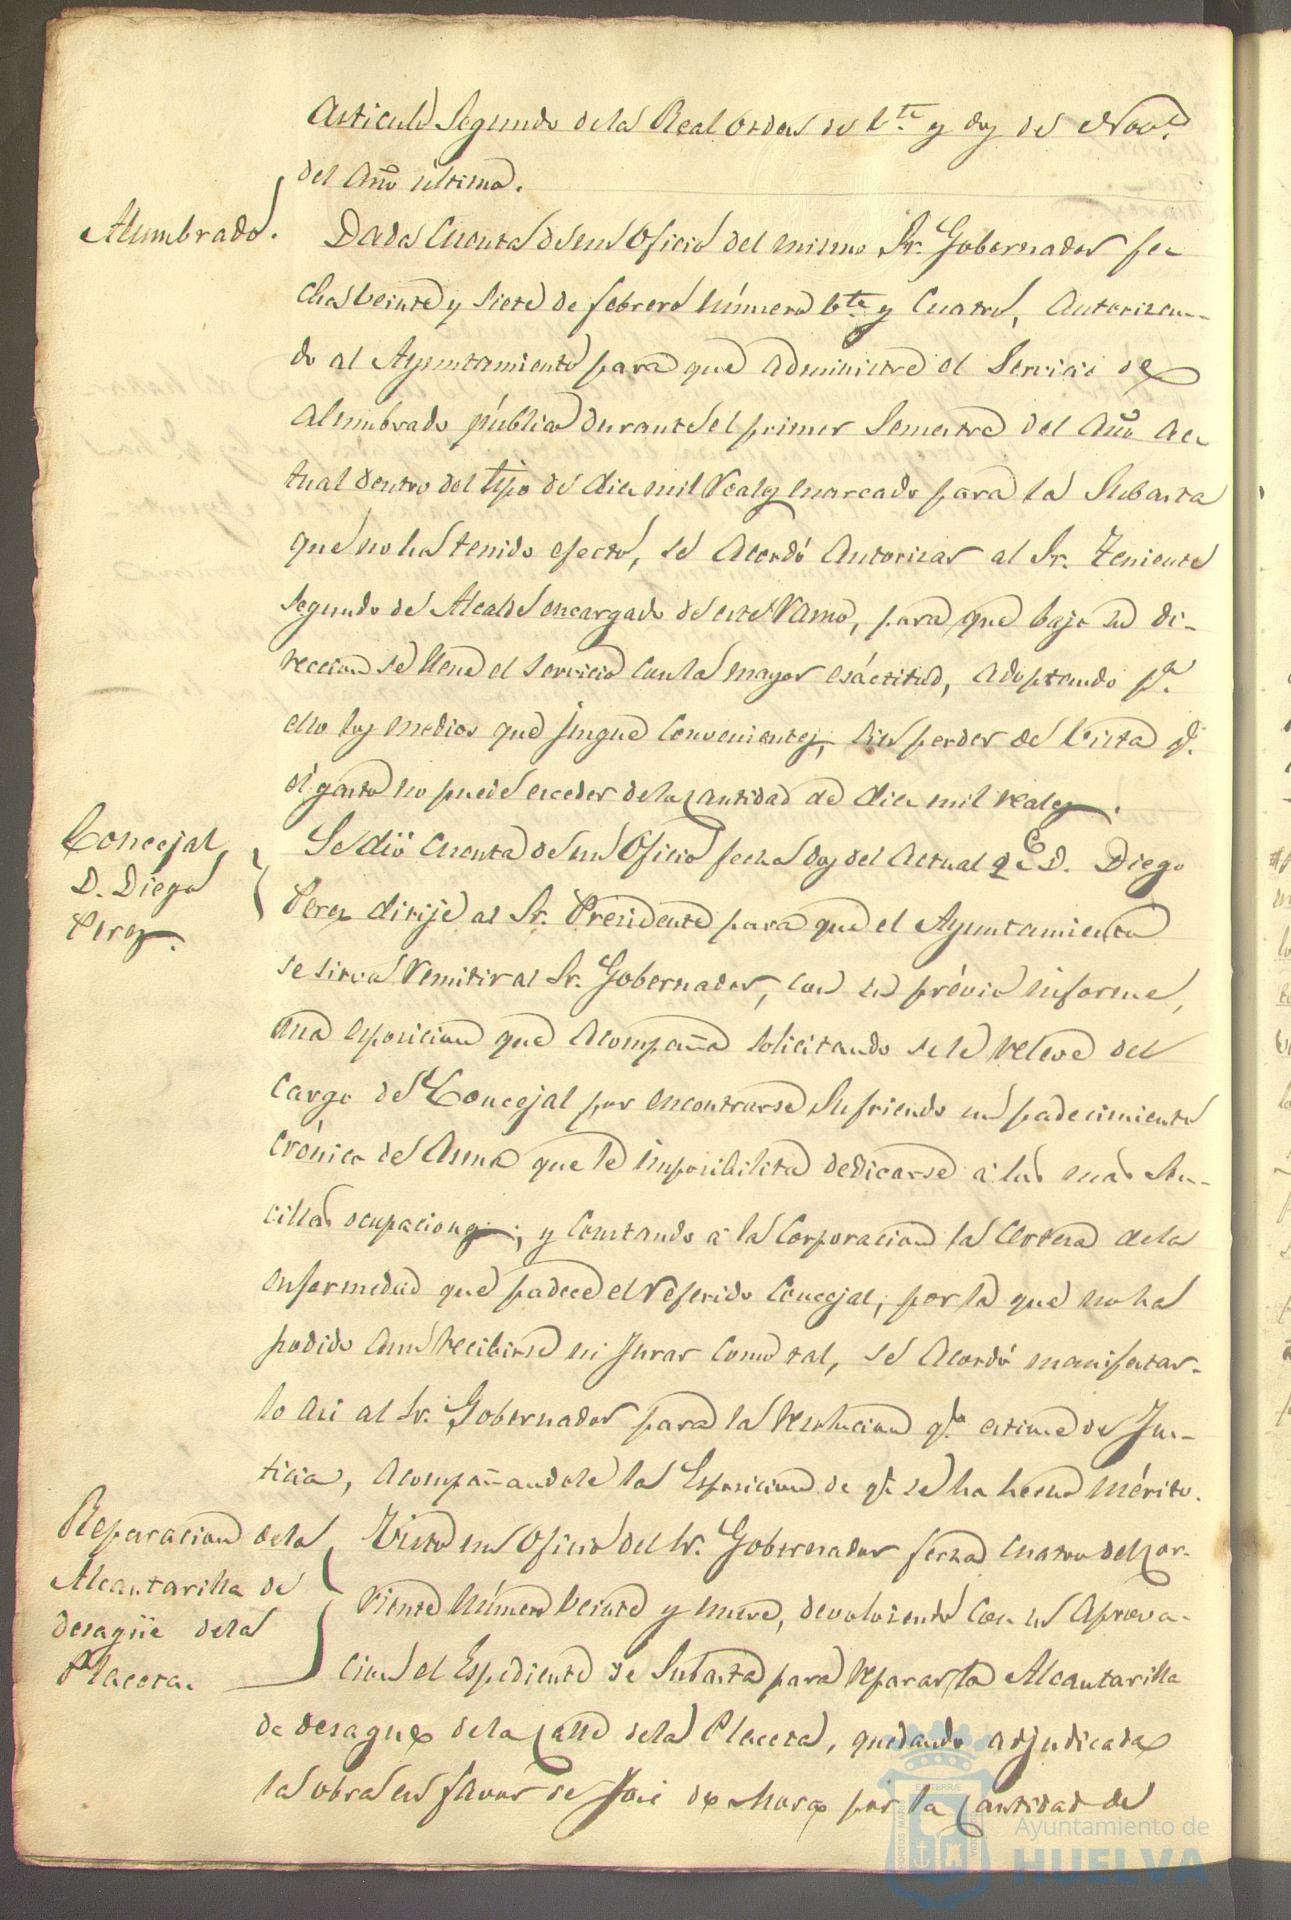 Articulo Segundo de la Real orden de b.te y dos de Nov.e
del Año último.
Alumbrado.
Dada Cuenta de un Oficio del mismo Sr. Gobernador fe
cha beinte y siete de febrero número b.te y Cuatro, Autorizan-
do al Ayuntamiento para que administre el Servicio de
Alumbrado público durante el primer Semestre del Año Ac
tual dentro del tipo de diez mil reales marcado para la Subasta
que no ha tenido efecto, se Acordó Autorizar al Sr. Teniente
segundo de Alcalde encargado de este Ramo, para que bajo su di-
reccion se llene el servicio con la mayor esáctitud, adoptando p.a
ello los medios que jusgue Convenientes, sin perder de bista q.e
el gasto no puede exceder de la Cantidad de diez mil reales.
Concejal
D. Diego
Perez.
Se dió Cuenta de un Oficio fecha dos del Actual q.e D. Diego
Perez dirije al Sr. Presidente para que el Ayuntamiento
se sirva Remitir al Sr. Gobernador, con su prévio informe,
una esposicion que Acompaña solicitando se le releve del
Cargo de Concejal por encontrarse Sufriendo un padecimiento
Crónico de Asma que le imposibilita dedicarse á las mas Sen-
cillas ocupaciones; y Constando á la Corporacion la Certeza de la
enfermedad que padece el Referido Concejal, por la que no ha
podido Aun recibirse ni Jurar Como tal, se Acordó manifestar-
lo asi al Sr. Gobernador para la resolucion q.e estime de Jus-
ticia, Acompañandole la Esposicion de q.e se ha hecho mérito.
Reparacion de la
Alcantarilla de
desagüe de la
Placeta.
Visto un Oficio del Sr. Gobernador fecha Cuatro del Cor-
riente Número beinte y nueve, devolviendo Con su Aprova-
cion el Espediente de Subasta para Reparar la Alcantarilla
de desague de la Calle de la Placeta, quedando adjudicada
la obra en favor de José de Mora por la Cantidad de
Ayuntamiento de
HUELVA